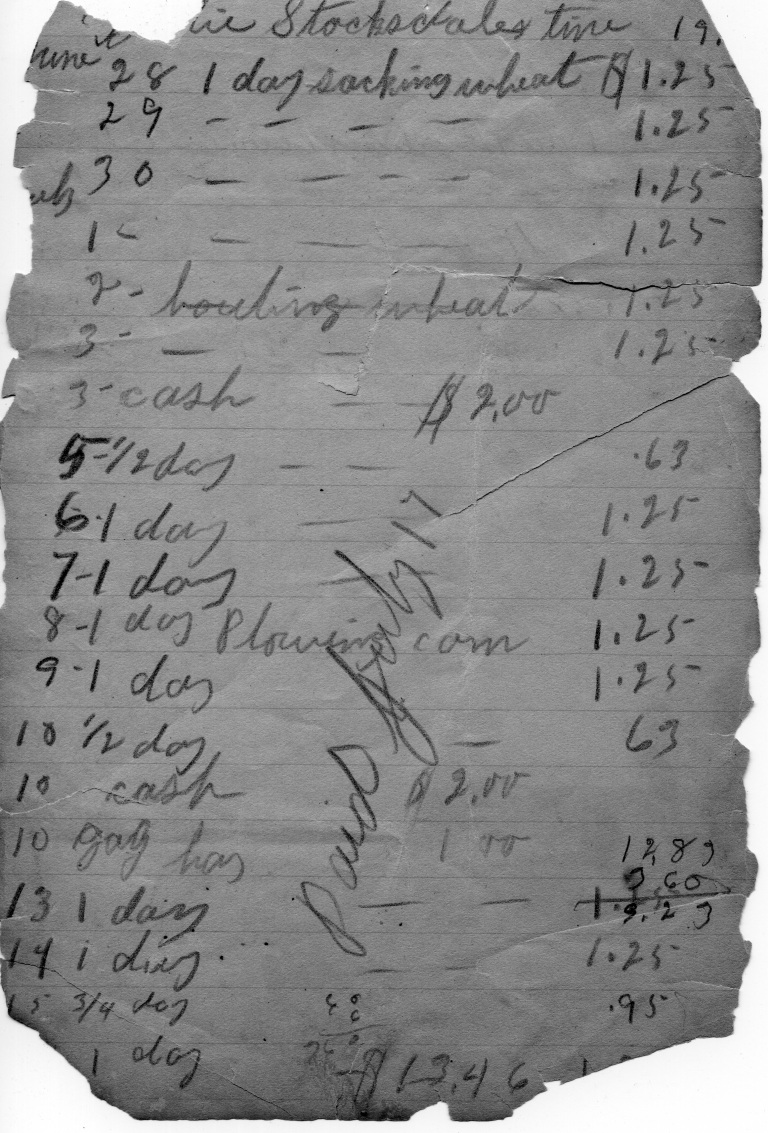 Stocksdales time 19.
June
28 1 day sacking wheat $1.25
29 - - - - 1.25
30 - - - - 1.25
1 - - - - 1.25
2 - houling wheat 1.25
3 - - - 1.25
3 - cash - - $2.00
5 - 1/2 day - - .63
6 - 1 day - 1.25
7 - 1 day - - 1.25
8 - 1 day Plowing corn 1.25
9 - 1 day 1.25
10 1/2 day - 63
10 cash $2.00
10 hay 1.00
12,83
3.60
9.23
13 1 day - - 1.
14 1 day - - 1.25
15 3/4 day .95
1 day $13.46 1.
Paid July 17